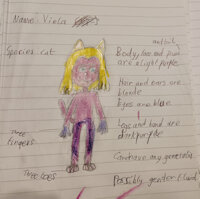 Name: Viola
Species: cat
Body, face and
are a light purple
Hair and ears are
blonde
Eyes are blue
Legs and hand are
dark purple
Three
fingers
Can have any genitalia
Three toes
Possibly gender fluid